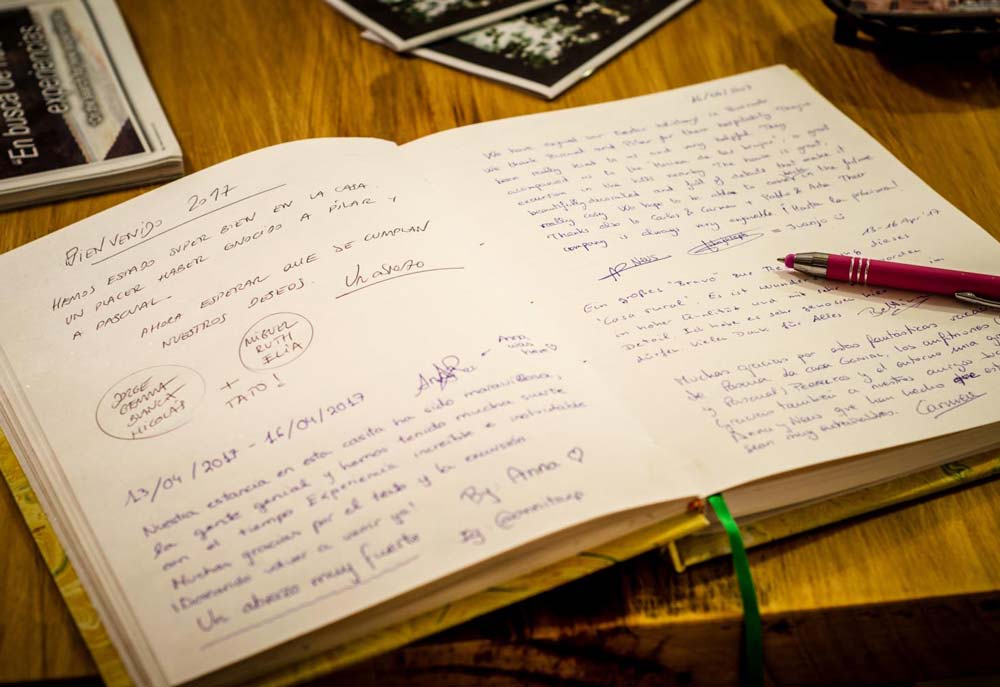 "En busca de
experiencias
BIENVENIDO 2017
HEMOS ESTADO SUPER BIEN EN LA CASA.
UN PLACER HABER CONOCIDO A PILAR Y
A PASCUAL.
AHORA ESPERAR QUE DE CUMPLAN
NUESTROS DESEOS. Un abrazo
MIGUEL
RUTH
ELIA
JORGE
GEMMA
BLANCA
NICOLAS
+
TATO!
Anna
was
here
13/04/2017 - 16/04/2017
Nuestra estancia en esta casita ha sido maravillosa,
la gente genial y hemos tenido mucha suerte
con el tiempo. Experiencia increíble e inolvidable
Muchas gracias por el texto y la excursión
¡Deseando volver a venir ya!
Un abrazo muy fuerte
By: Anna ♡
16/04/2017
We have enjoyed our Easter holidays in
We thank Pascual and Pilar for their hospitality. They've
been really kind to us and very helpful. They
accompanied us to the
excursion in the hills nearby. The house is great,
beautifully decorated and full of details that make it
really cosy. We hope to be able to come in the future.
Thanks also to Carlos & Carmen + Pablo & Ada. Their
company is always very enjoyable ¡Hasta la próxima!
News = Juanjo ☺
13-16 Apr '17
Ein großes "Bravo" zur dieses
"Casa rural". Es ist
in hoher Qualität und mit sehr im
Detail. Ich habe es sehr genossen hier
dürfen. Vielen Dank für Alles
Muchas gracias por estas fantásticas
de Pascua. La casa Genial, los anfitriones
y Pascual, y el entorno una
Gracias también a nuestros amigos
Anna y que han hecho que
sean muy entrañables. Carmen